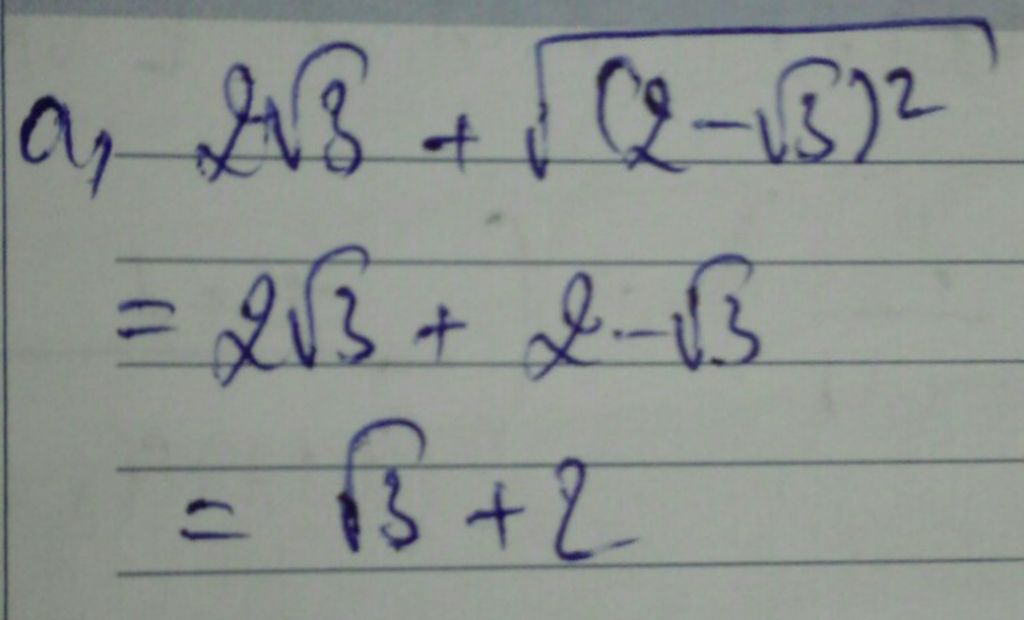 a, 2√3 + √(2-√3)²
= 2√3 + 2-√3
= √3 + 2